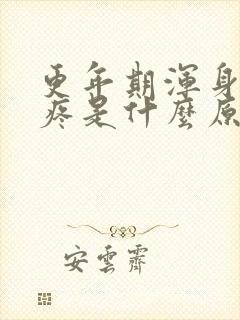 更年期渾身
疼是什麼原
安雲齋